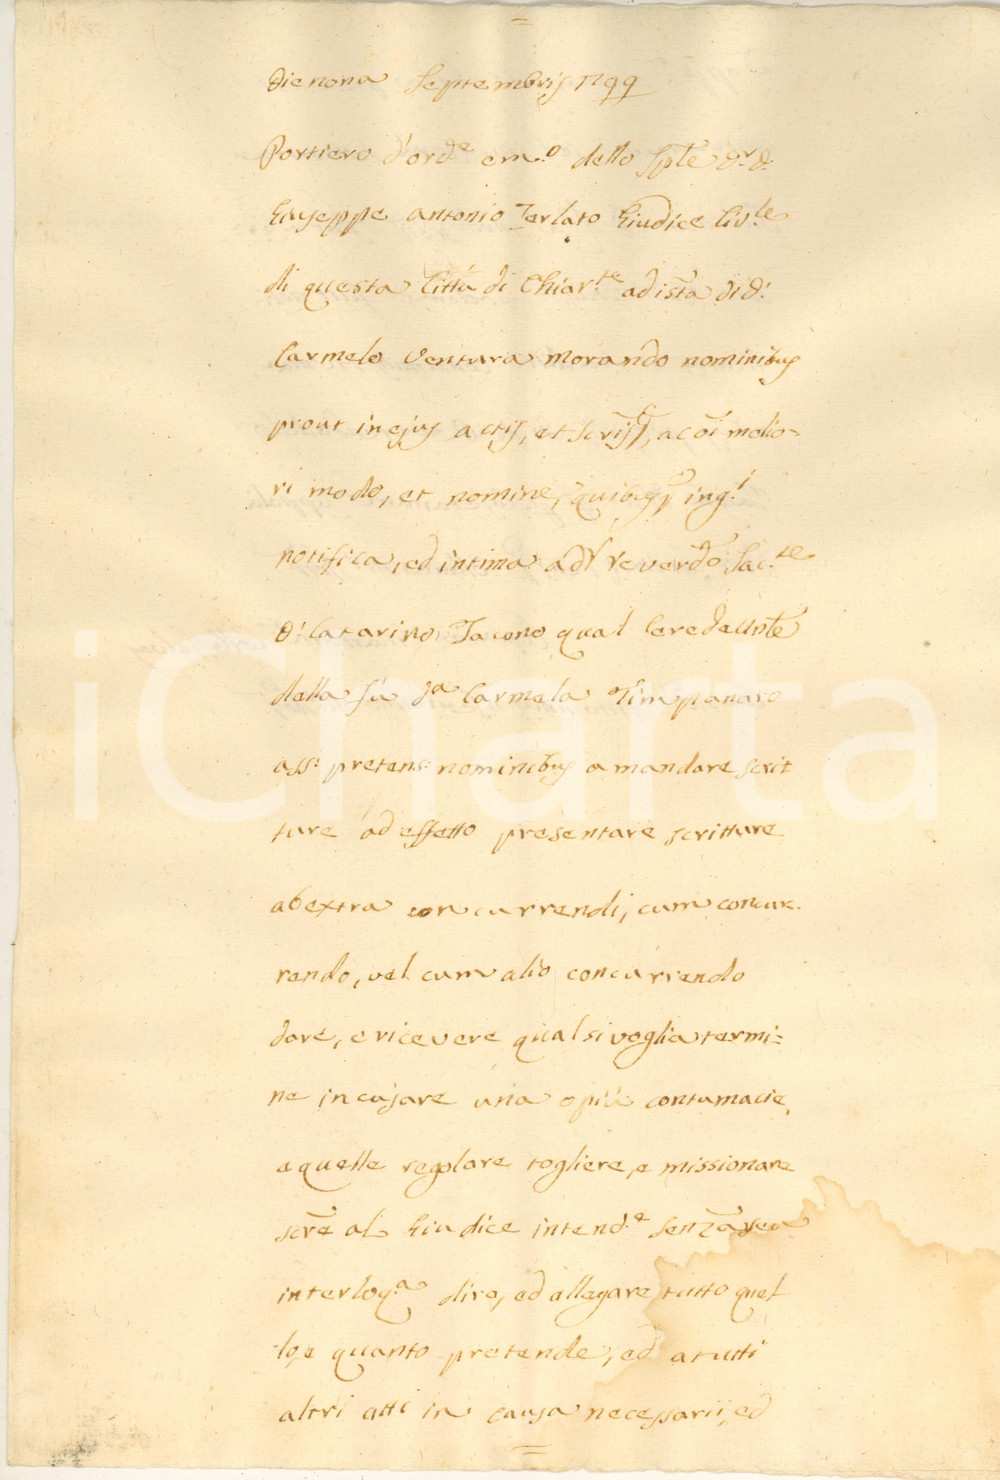 Die nona Septembris 1799
Portiero d'ord.e em.o dello Sp.te D.r D.
Giuseppe Antonio Terlato Giudice Civ.le
di questa Città di Chiar.te ad ista di D.
Carmelo Ventura Morando nominibus
prout in ejus actis, et scris, ac oi melio=
ri modo, et nomine, quibus ing.
notifica, ed intima a Rever.do Sac.te
D. Catarino Iacono qual erede
della fù D.a Carmela Timpanaro
ass: pretens: nominibus a mandare scrit
ture ad effetto presentare scritture
ab extra concurrendi, cum concur.
rendo, vel cum alio concurrendo
dare, e ricevere qualsivoglia termi=
ne incusare una o più contumacie,
e quelle regolare togliere, e missionare
scre al Giudice intend.e senza
interloq.a dire, ed allegare tutto quel
lo, e quanto pretende, ed a tutti
altri atti in causa necessarii, ed
iCharta